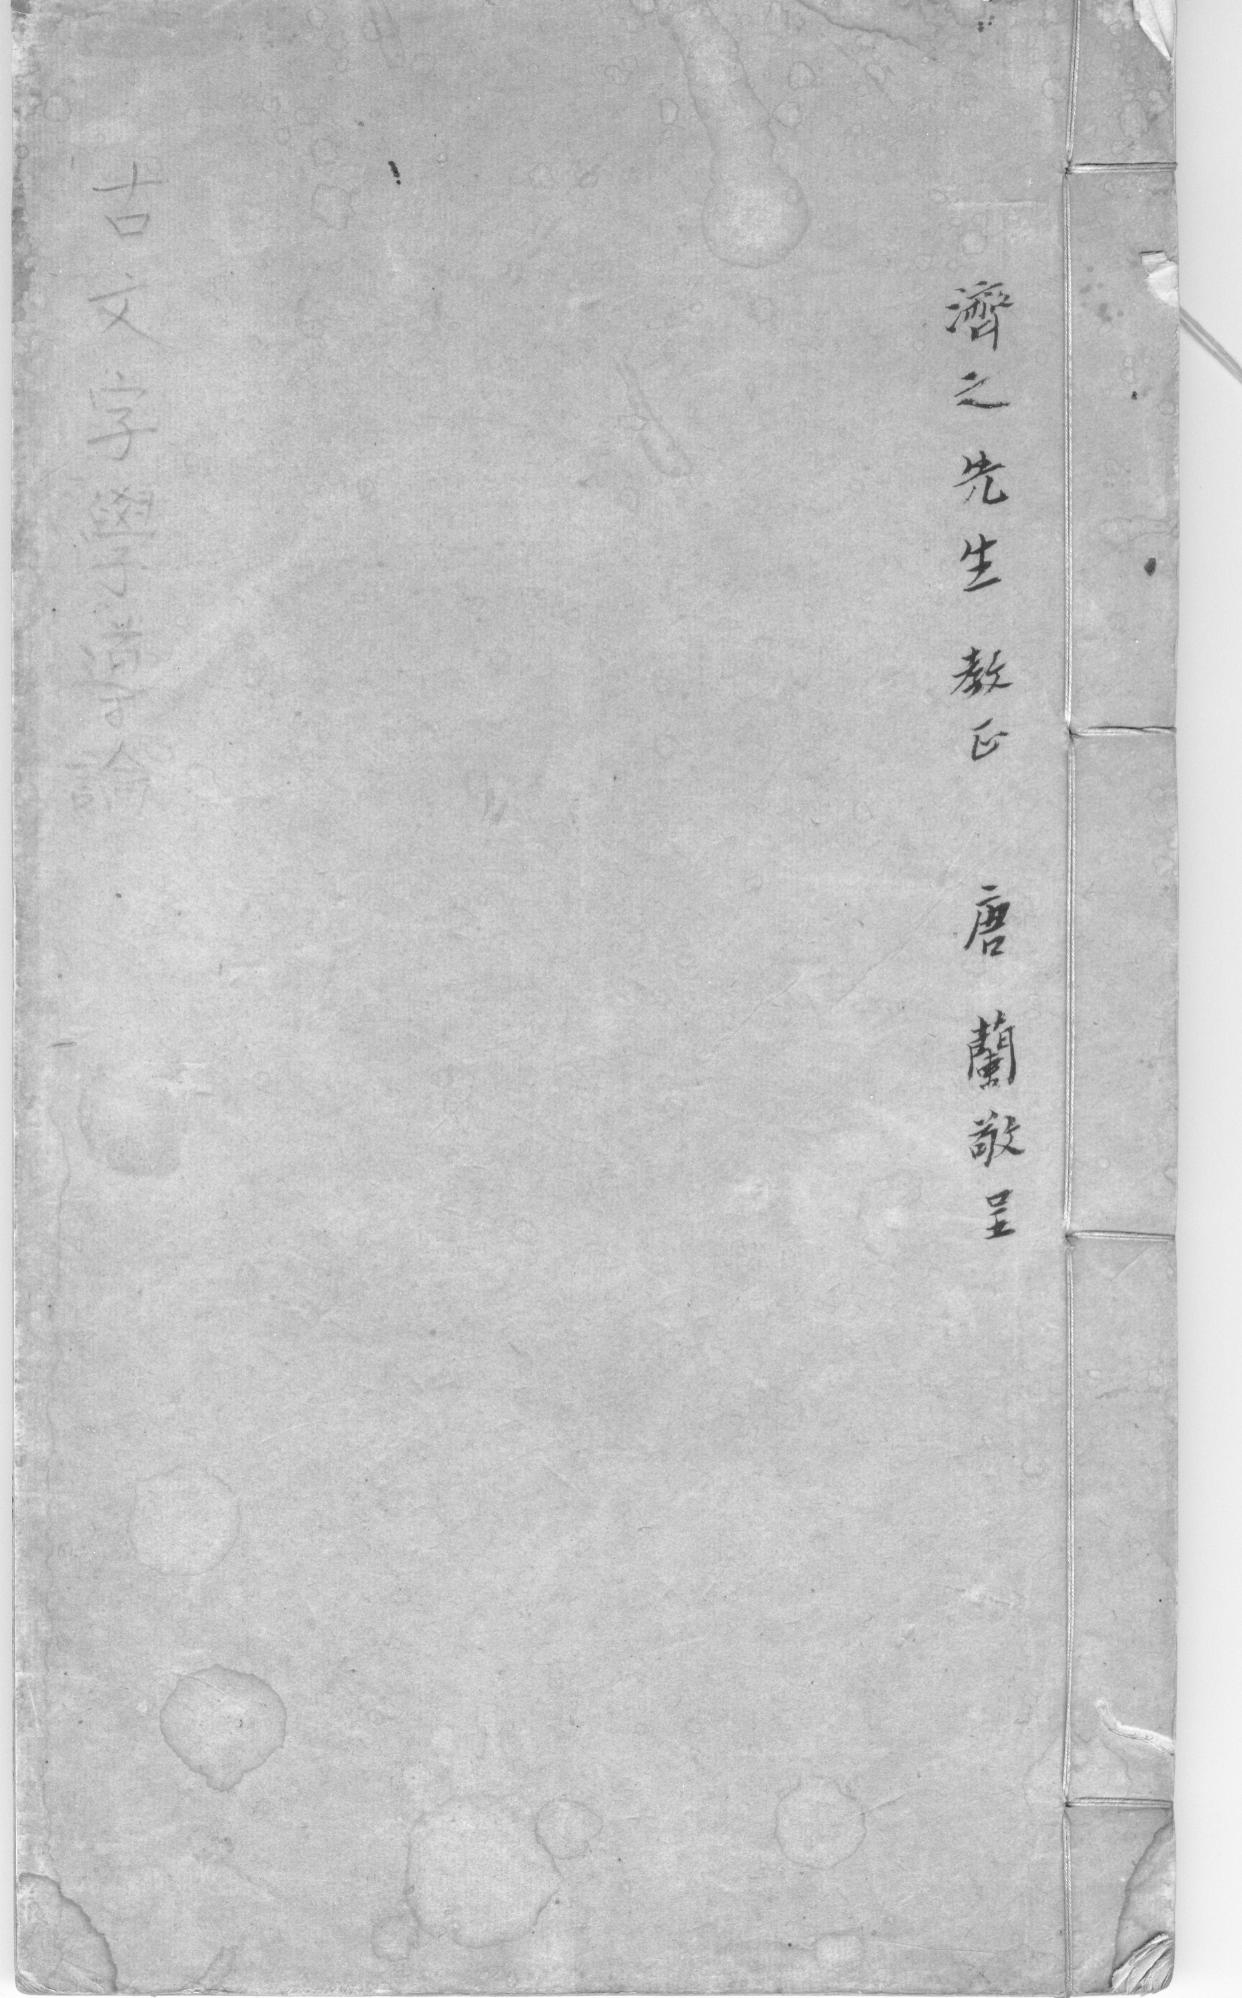 濟之先生 教正 唐蘭敬呈
古文字學導論